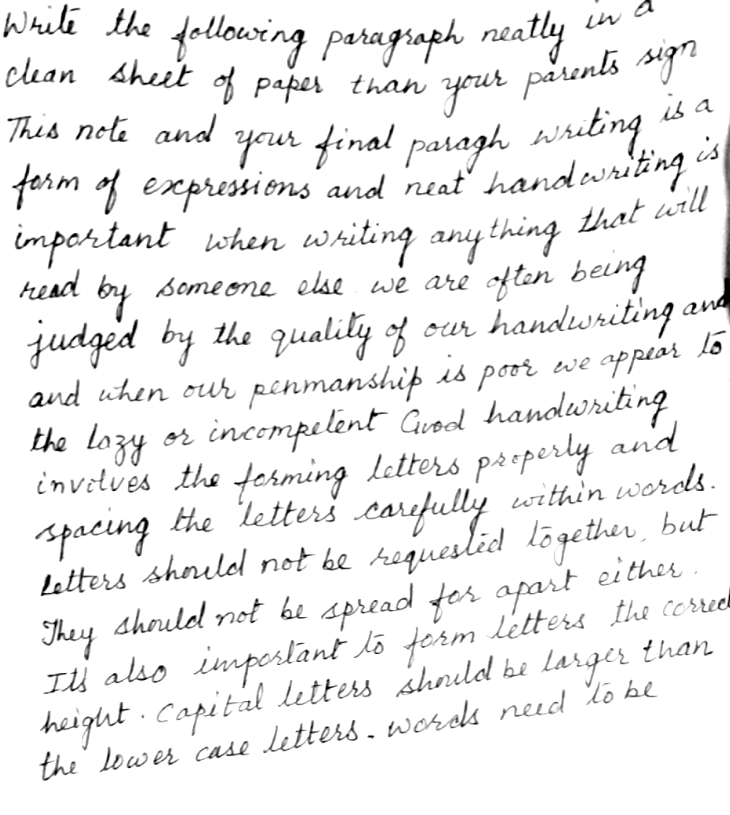 Write the following paragraph neatly in a
clean sheet of paper than your parents sign
This note and your final paragh writing is a
form of expressions and neat handwriting is
important when writing anything that will
read by someone else we are often being
judged by the quality of our handwriting and
and when our penmanship is poor we appear to
the lazy or incompetent Good handwriting
involves the forming letters properly and
spacing the letters carefully within words.
Letters should not be requested together, but
They should not be spread for apart either.
Its also important to form letters the correct
height. Capital letters should be larger than
the lower case letters. words need to be